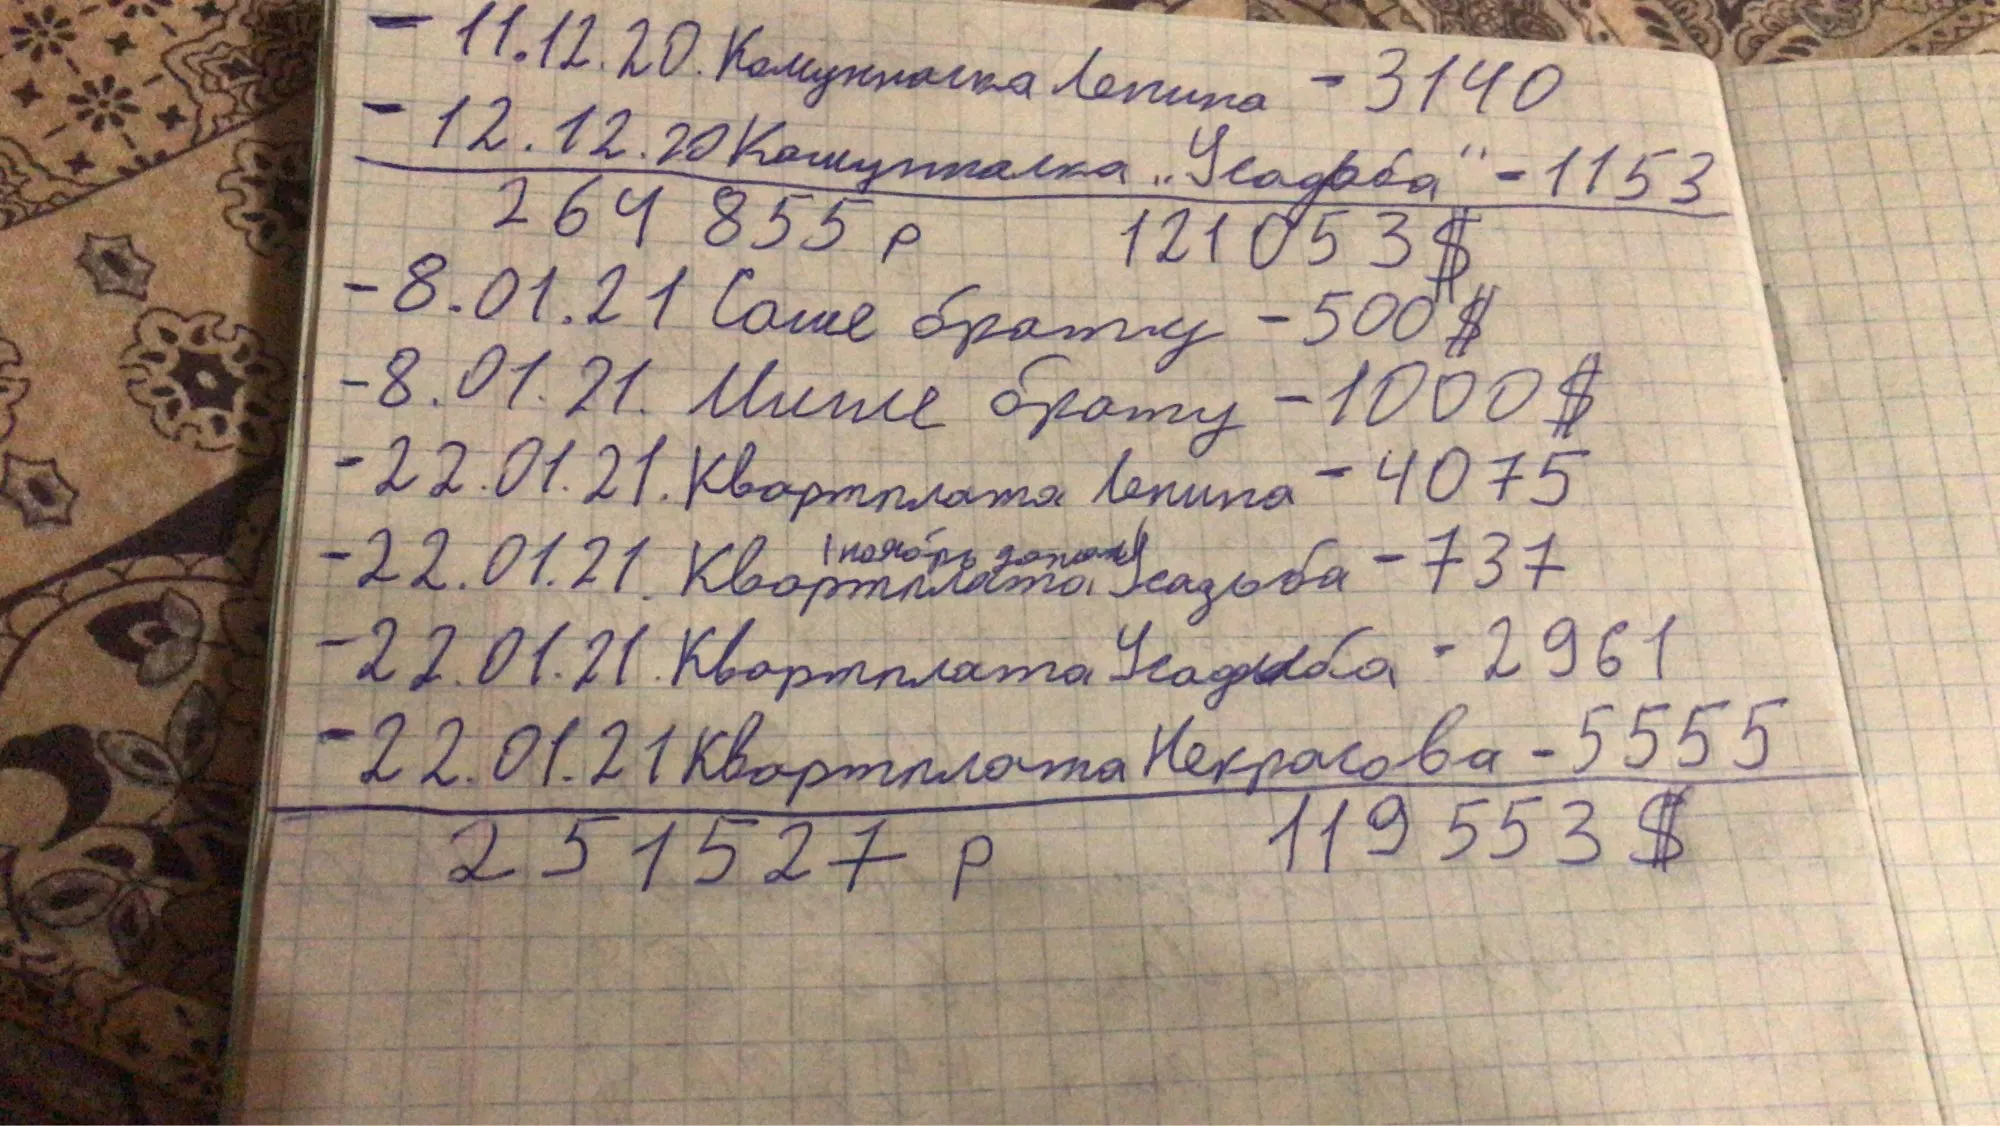 - 11.12.20. Комуналка Ленина - 3140
- 12.12.20 Комуналка „Усадьба" - 1153
264 855 р 121053$
- 8.01.21 Саше брату - 500$
- 8.01.21. Мише брату - 1000$
- 22.01.21. Квартплата Ленина - 4075
ноябрь
- 22.01.21. Квартплата Усадьба - 737
- 22.01.21. Квартплата Усадьба - 2961
- 22.01.21 Квартплата Некрасова - 5555
251527 р 119553$